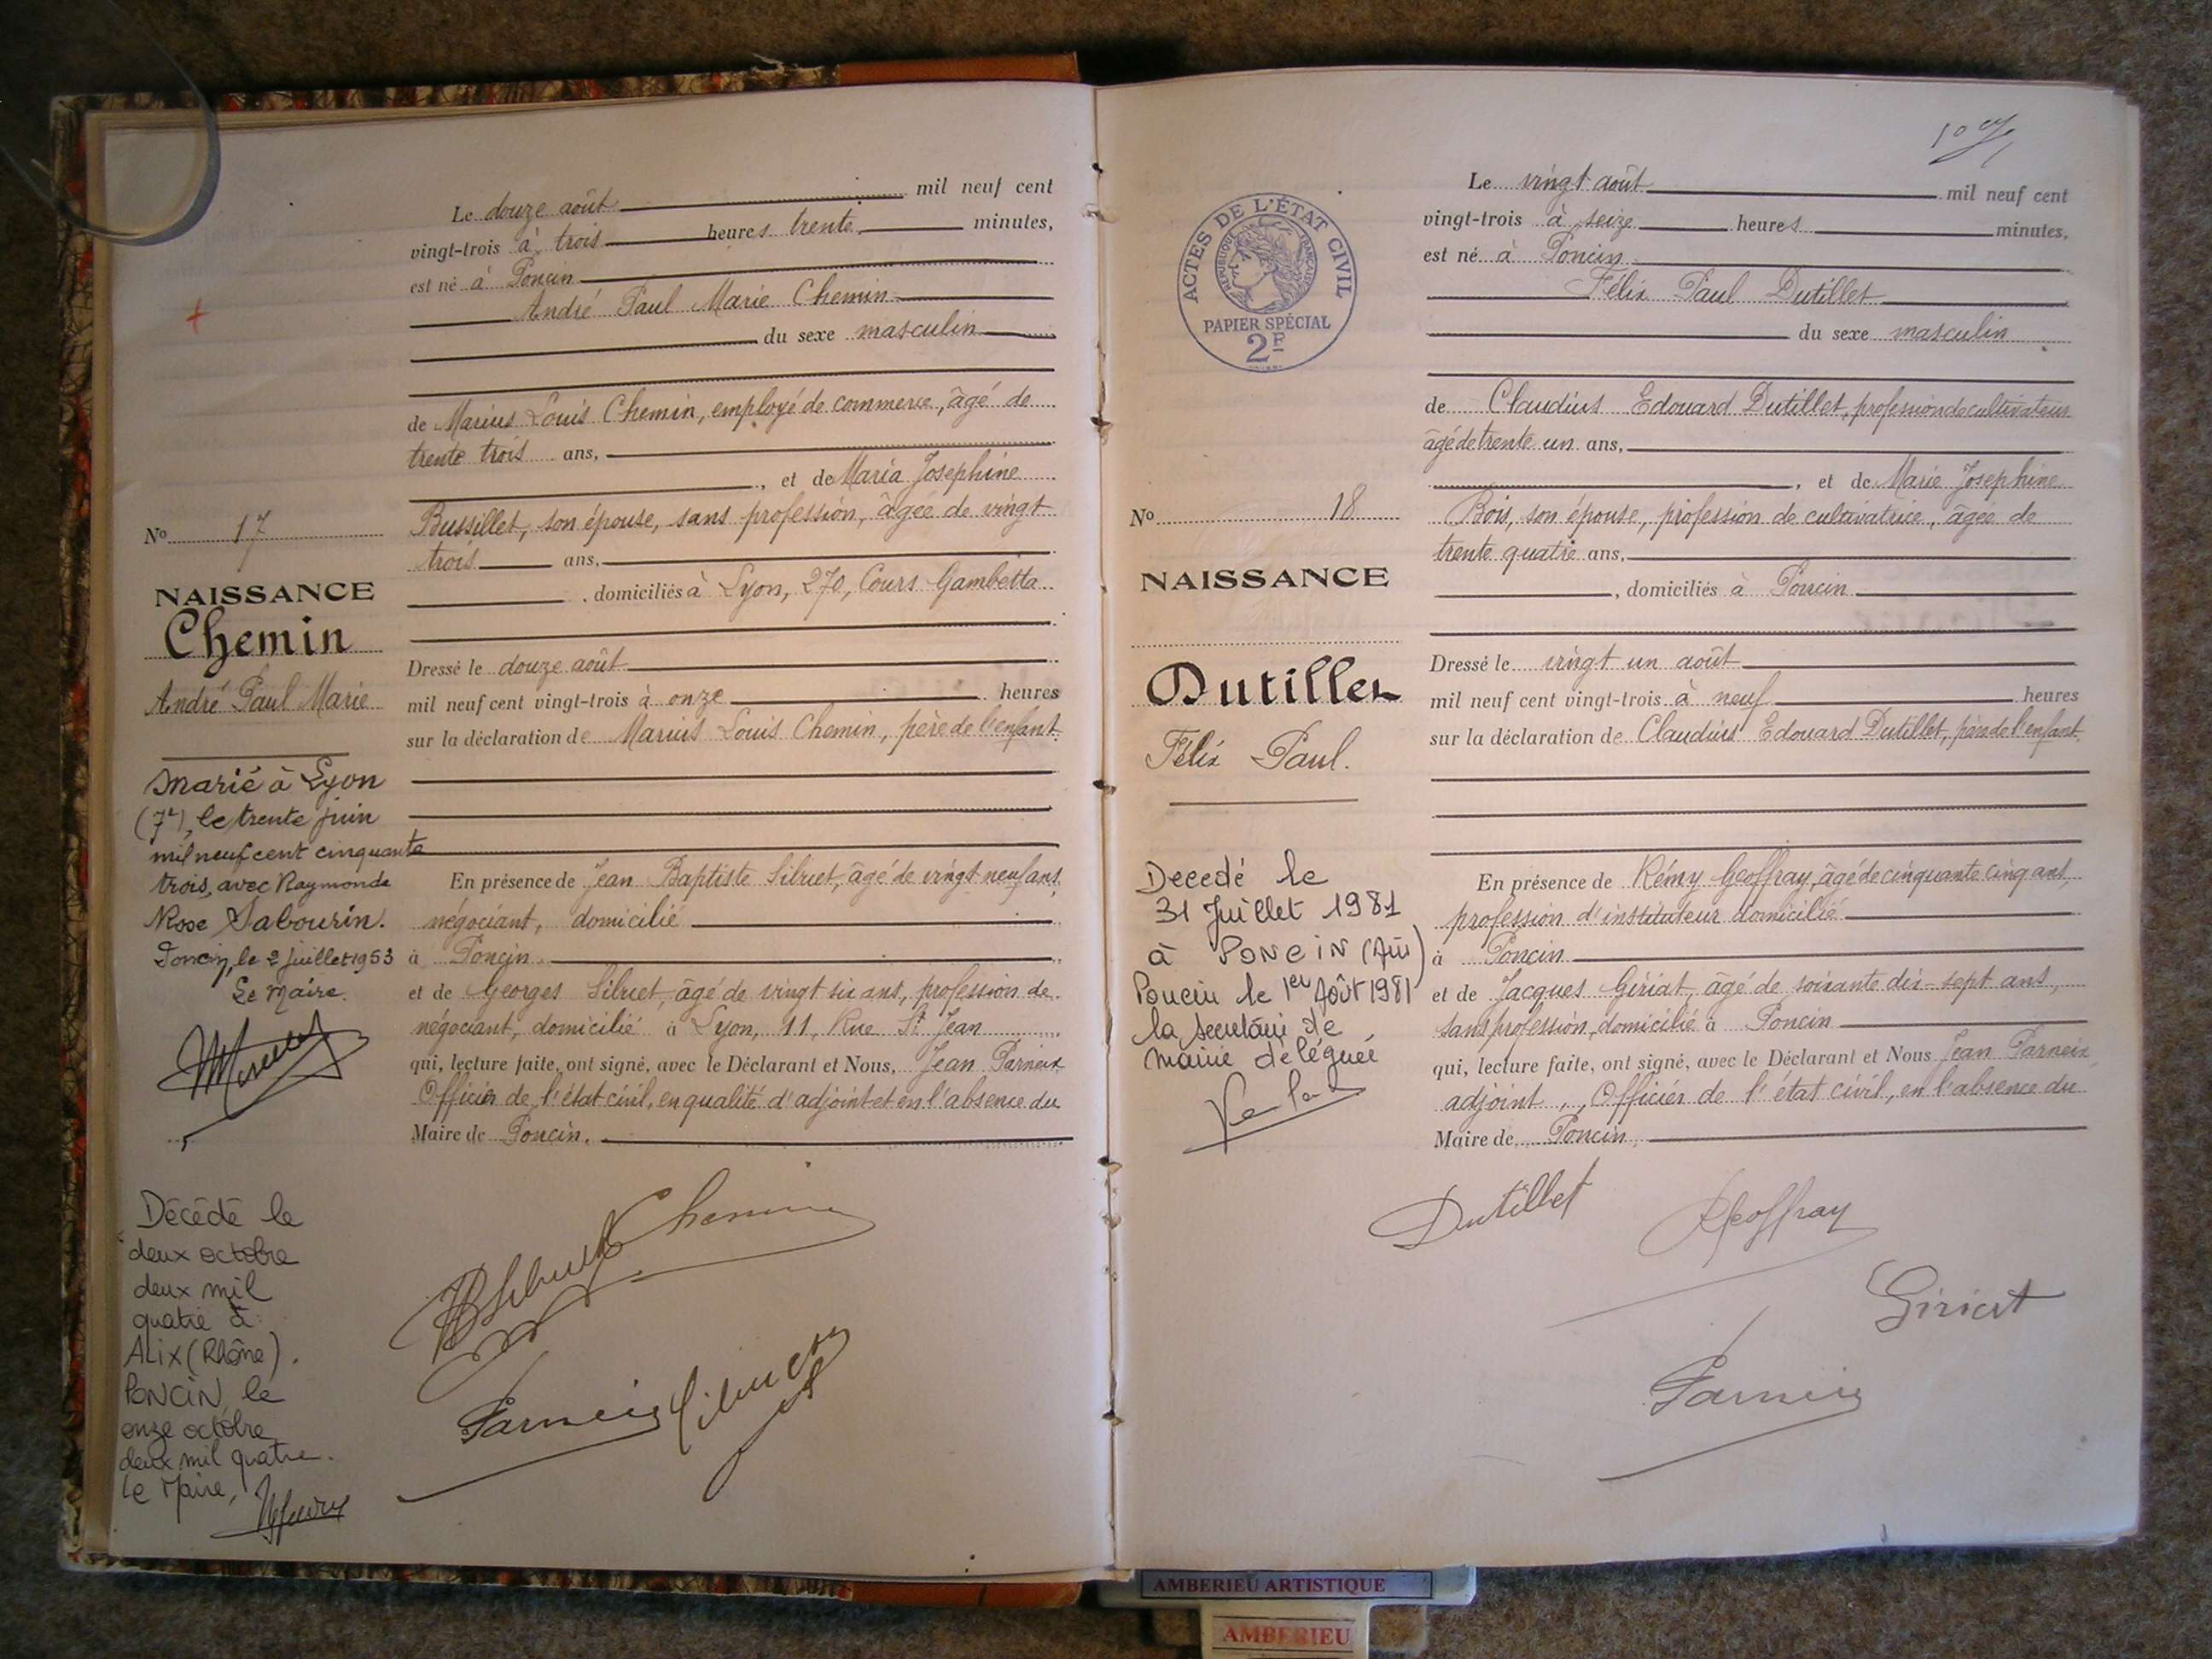 Le douze août mil neuf cent
vingt-trois à trois heures trente minutes,
est né à Poncin
André Paul Marie Chemin
du sexe masculin
de Marius Louis Chemin, employé de commerce, âgé de
trente trois ans,
, et de Maria Josephine
Bussillet, son épouse, sans profession, âgée de vingt
trois ans,
, domiciliés à Lyon, 270, Cours Gambetta
Dressé le douze août
mil neuf cent vingt-trois à onze heures
sur la déclaration de Marius Louis Chemin, père de l'enfant.
En présence de Jean Baptiste âgé de vingt neuf ans,
négociant, domicilié
à Poncin
et de Georges âgé de vingt six ans, profession de
négociant, domicilié à Lyon, 11, Rue St Jean
qui, lecture faite, ont signé, avec le Déclarant et Nous, Jean Parneix
Officier de l'état civil, en qualité d'adjoint et en l'absence du
Maire de Poncin.
No 17
NAISSANCE
Chemin
André Paul Marie
Marié à Lyon
(7e), le trente juin
mil neuf cent cinquante
trois, avec Raymonde
Rose Sabourin.
Poncin, le 2 juillet 1953
Le Maire.
Décédé le
deux octobre
deux mil
quatre à
ALIX (Rhône).
PONCIN, le
onze octobre
deux mil quatre.
Le Maire,
Chemin
Parneix
107
Le vingt août mil neuf cent
vingt-trois à seize heures minutes,
est né à Poncin
Félix Paul Dutillet
du sexe masculin
de Claudius Edouard Dutillet, profession de cultivateur
âgé de trente un ans,
, et de Marie Josephine
Bois, son épouse, profession de cultivatrice, âgée de
trente quatre ans,
, domiciliés à Poncin
Dressé le vingt un août
mil neuf cent vingt-trois à neuf heures
sur la déclaration de Claudius Edouard Dutillet, père de l'enfant.
En présence de Rémy Geoffray, âgé de cinquante cinq ans,
profession d'instituteur domicilié
à Poncin
et de Jacques Giriat, âgé de soixante dix-sept ans,
sans profession, domicilié à Poncin
qui, lecture faite, ont signé, avec le Déclarant et Nous Jean Parneix
adjoint, Officier de l'état civil, en l'absence du
Maire de Poncin.
ACTES DE L'ÉTAT CIVIL
RÉPUBLIQUE FRANÇAISE
PAPIER SPÉCIAL
2F
No 18
NAISSANCE
Dutillet
Félix Paul.
Decedé le
31 Juillet 1981
à PONCIN (Ain)
Poncin le 1er Août 1981
la secrétaire de
mairie déléguée
Dutillet
Geoffray
Giriat
Parneix
AMBERIEU ARTISTIQUE
AMBERIEU